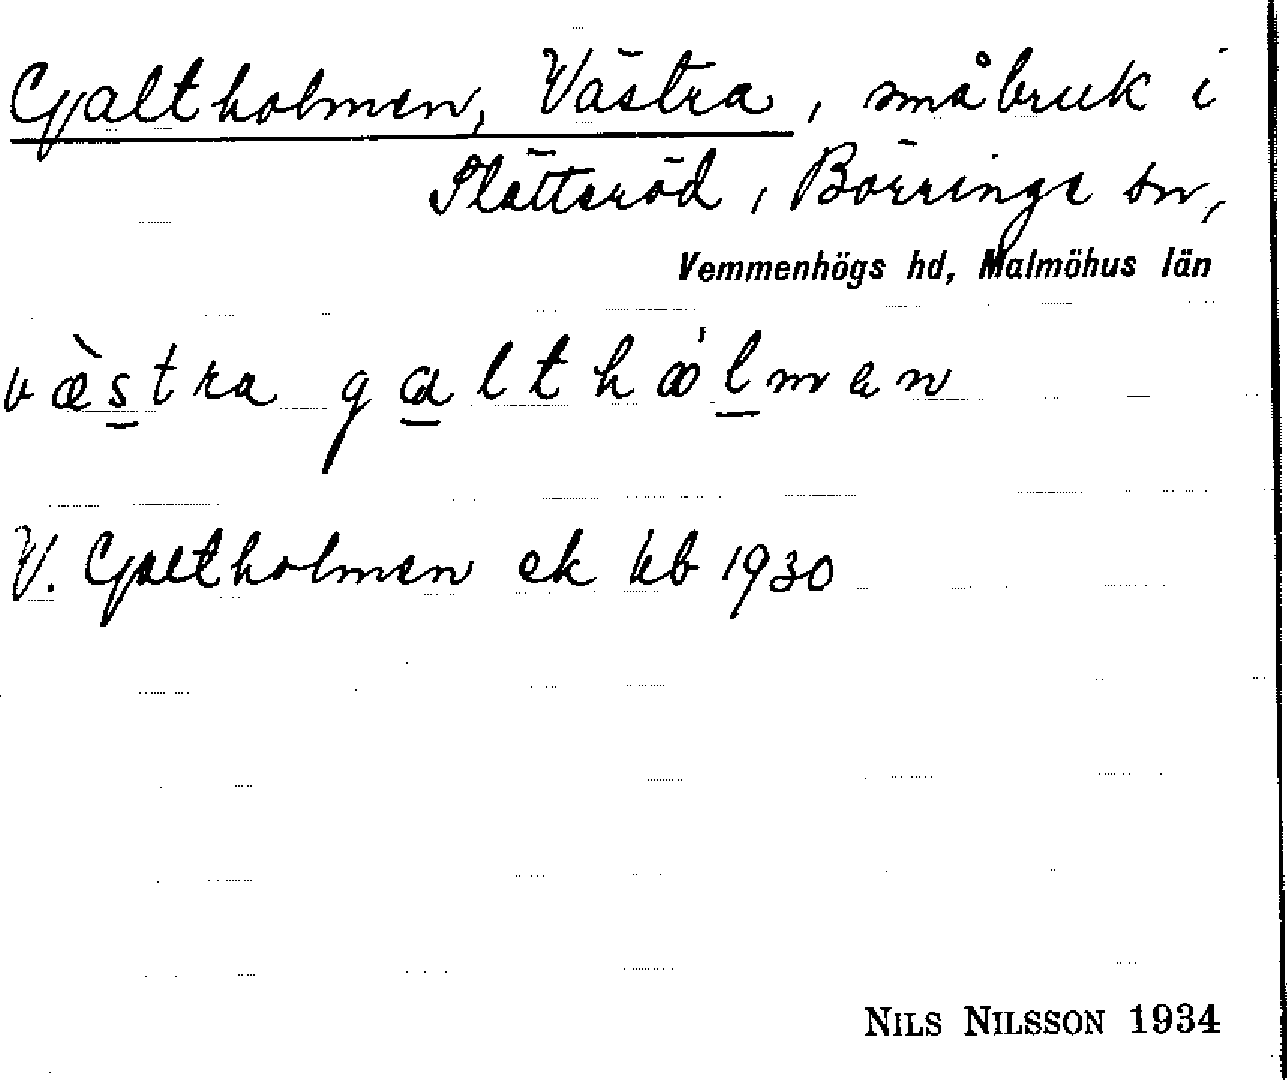 Galtholmen, Västra, småbruk i
Slätteröd, Börringe sn,
Vemmenhögs hd, Malmöhus län
væ̀stra galthȯlman
V. Galtholmen ek kb 1930
NILS NILSSON 1934